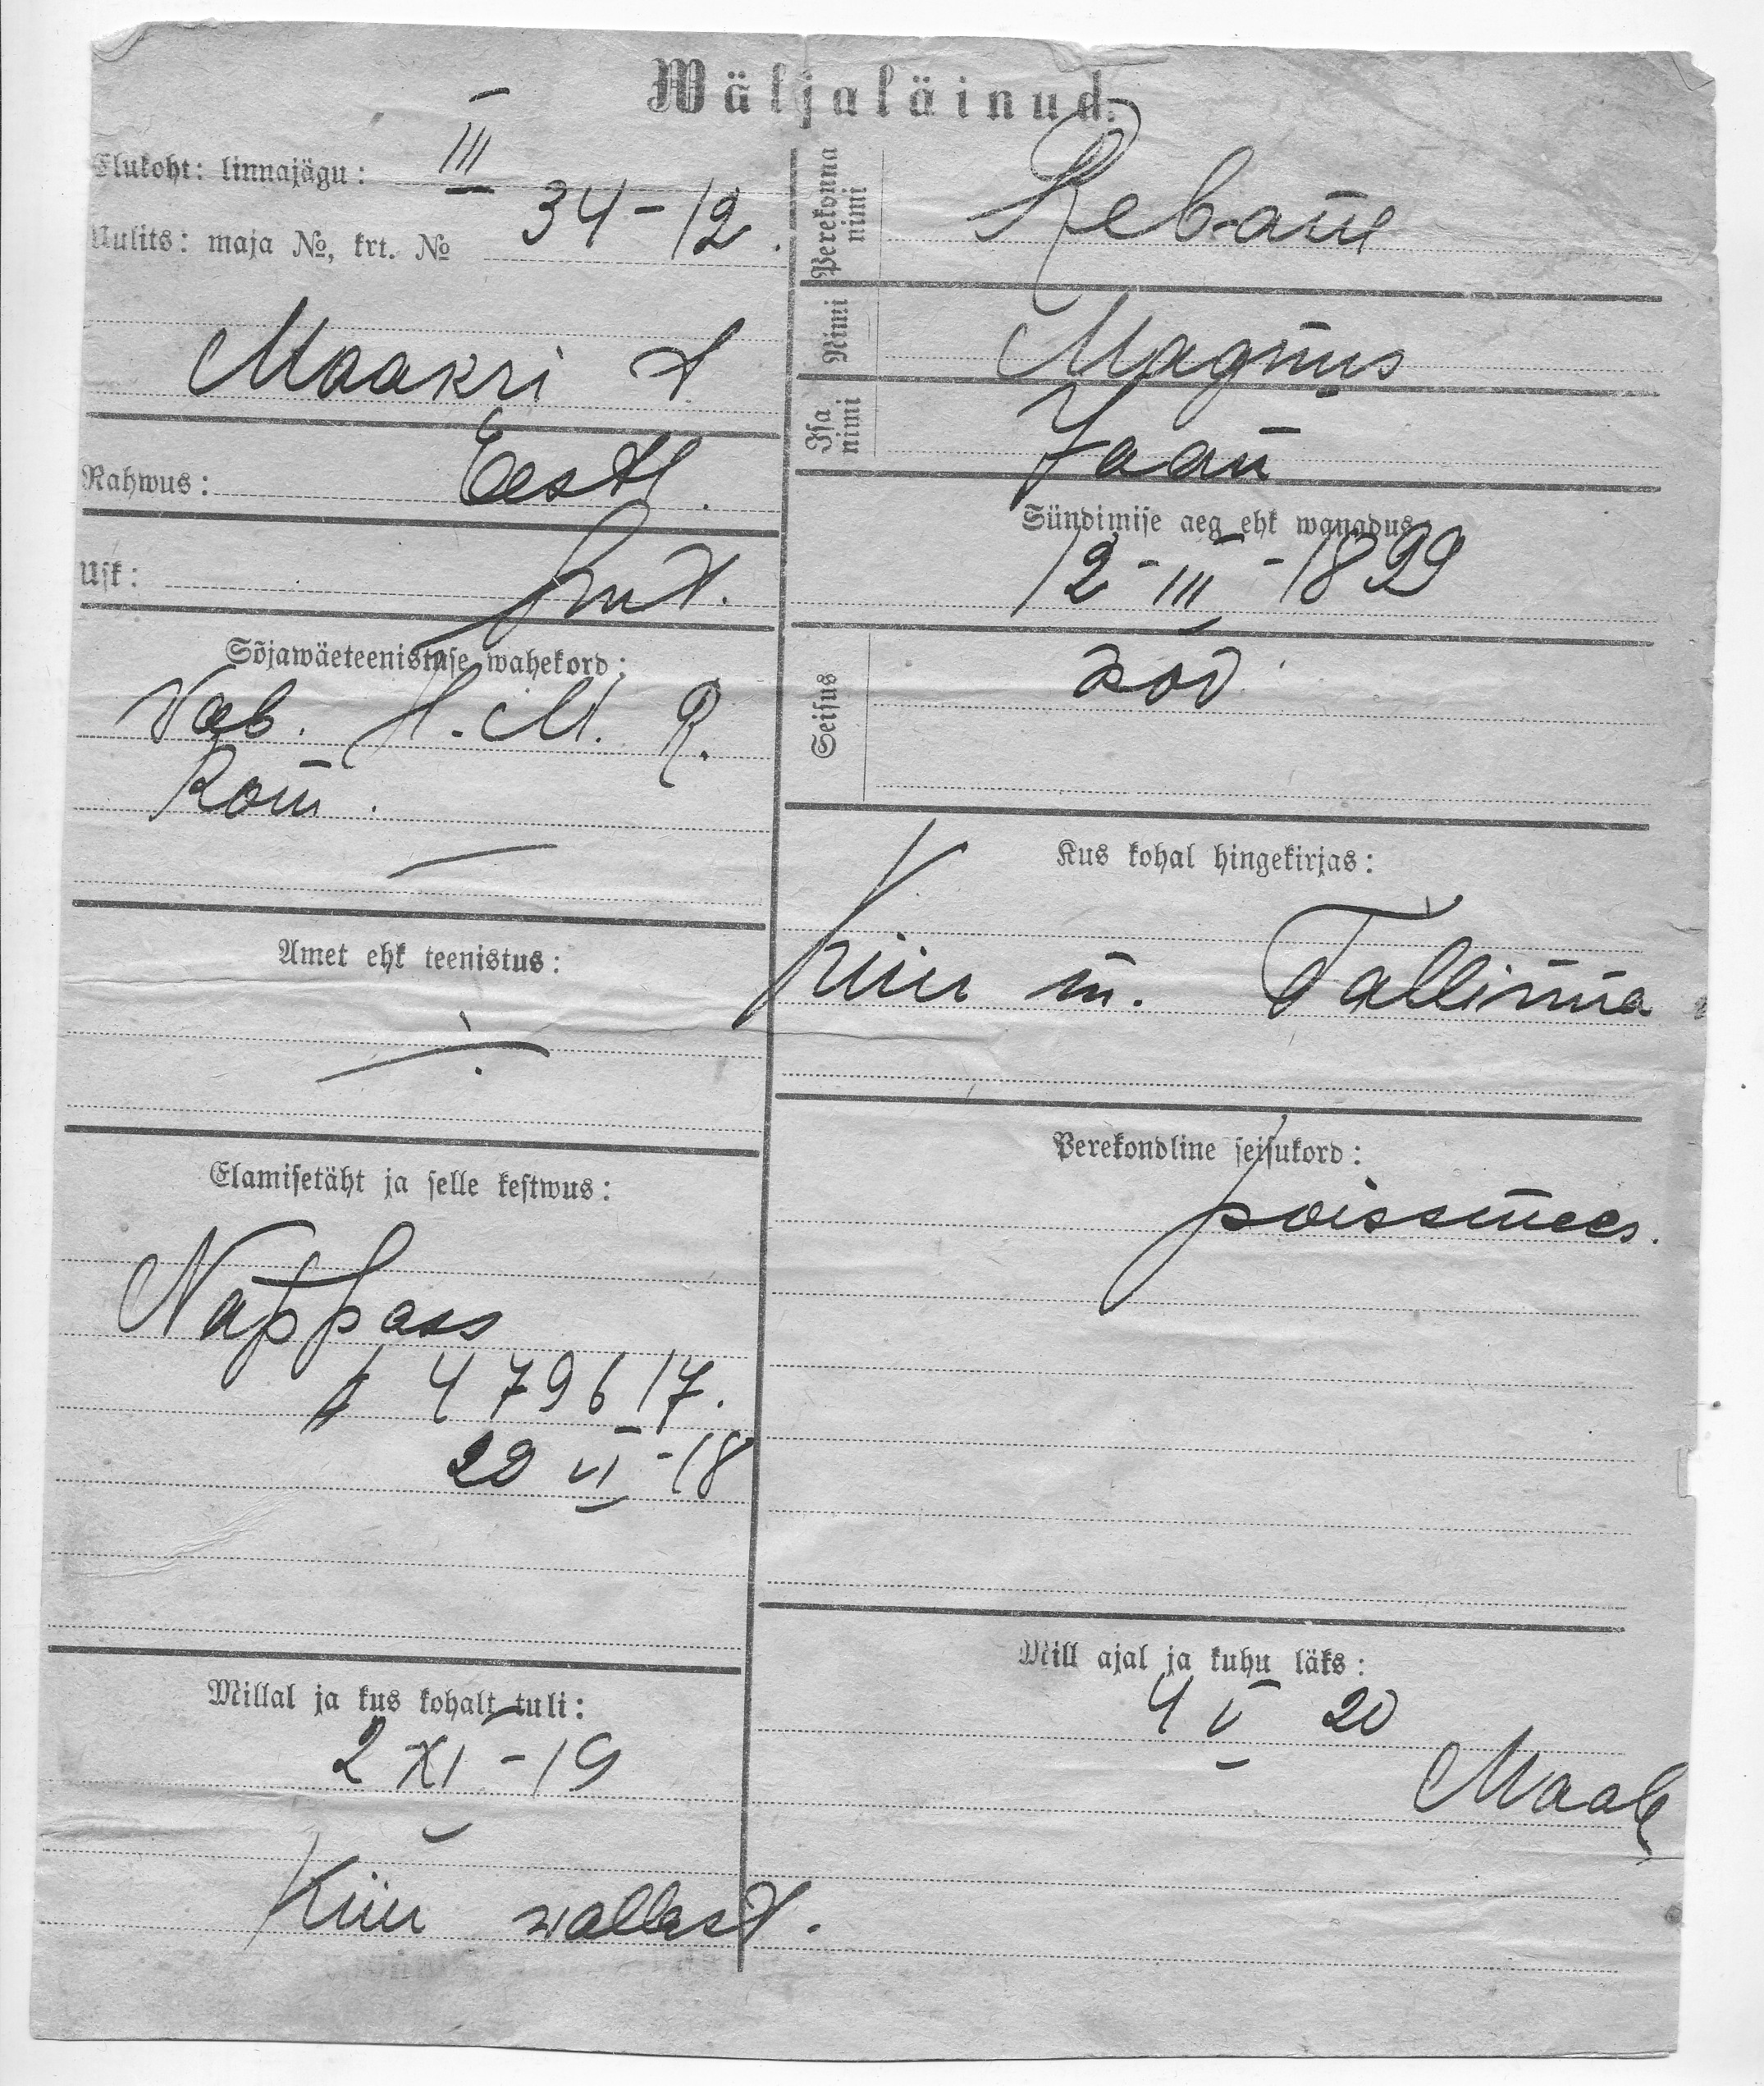 Wäljaläinud.
Elukoht: linnajägu: III
Uulits: maja №, krt. № 34-12.
Maakri t
Rahwus: Eestl.
Usk: Lut.
Sõjawäeteenistuse wahekord:
Vab. H. M. R.
Kom.
Amet ehk teenistus:
Elamisetäht ja selle kestwus:
Nat pass
№ 479617.
20 VI -18
Millal ja kus kohalt tuli:
2 XI -19
Kiiu wallast.
Perekonna nimi Rebane
Nimi Magnus
Isa nimi Jaan
Sündimise aeg ehk wanadus:
12-III-1899
Seisus
Kus kohal hingekirjas:
Kiiu m. Tallinna
Perekondline seisukord:
poissmees.
Mill ajal ja kuhu läks:
4 V 20
Maale